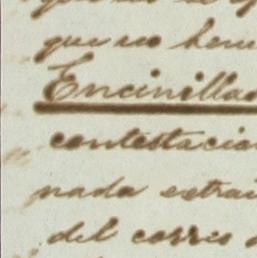 que no hem
Encinillas
contestacio
nada extrai
del correo